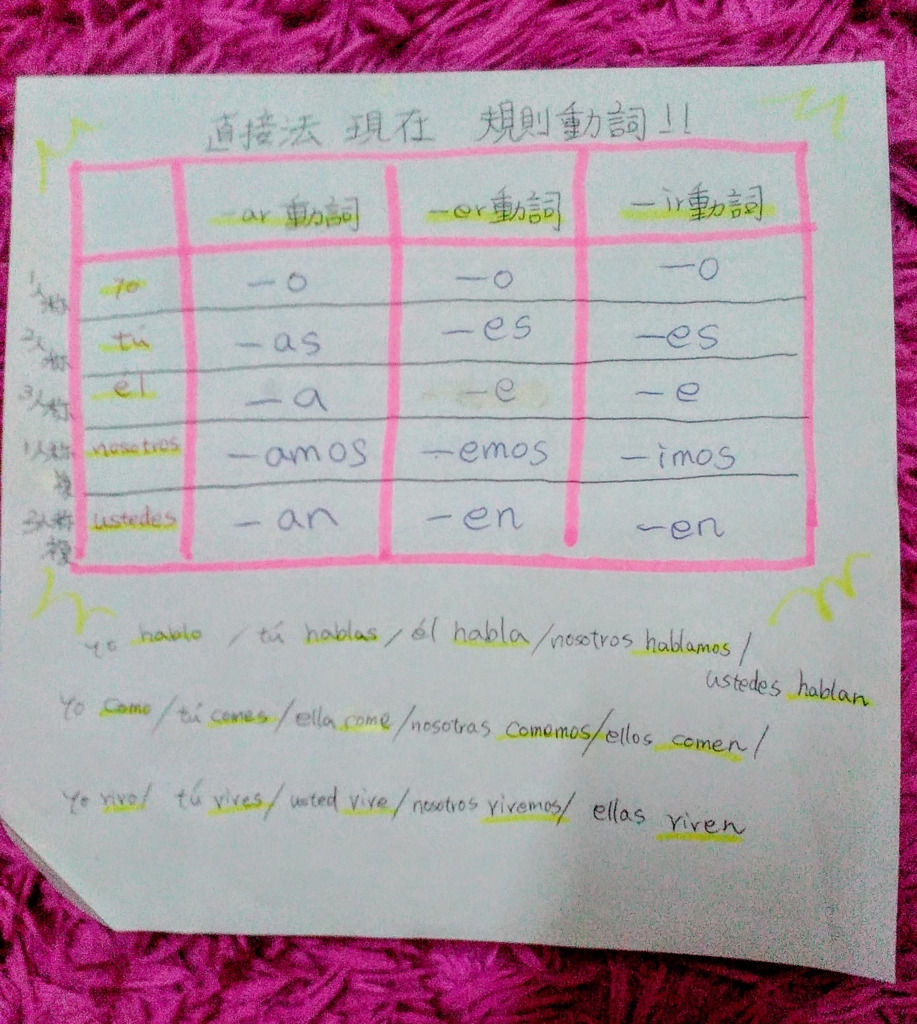 直接法 現在 規則動詞!!
-ar動詞 -er動詞 -ir動詞
1人称 yo -o -o -o
2人称 tú -as -es -es
3人称 él -a -e -e
1人称複 nosotros -amos -emos -imos
3人称複 ustedes -an -en -en
yo hablo / tú hablas / él habla / nosotros hablamos /
ustedes hablan
yo como / tú comes / ella come / nosotras comemos / ellos comen /
yo vivo / tú vives / usted vive / nosotros vivemos / ellas viven